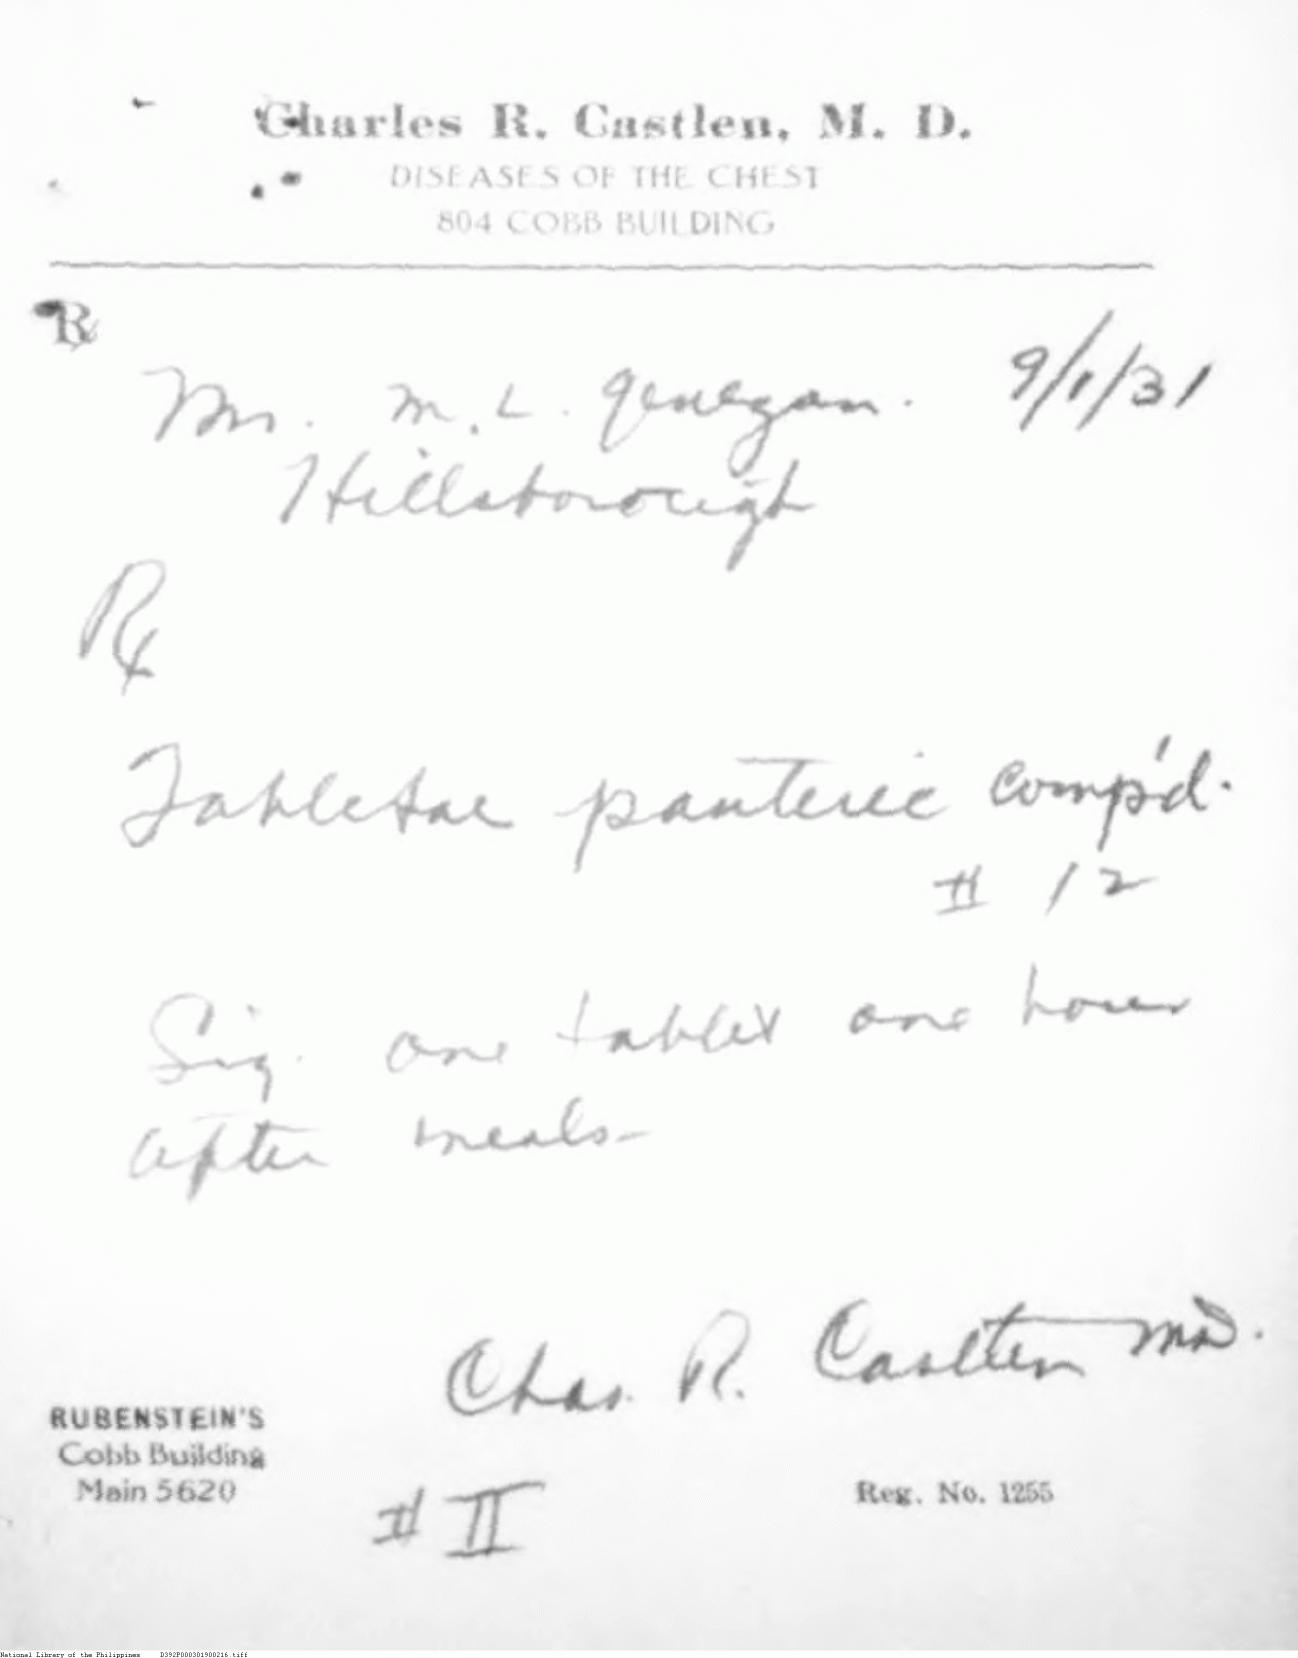 Charles R. Castlen, M. D.
DISEASES OF THE CHEST
804 COBB BUILDING
℞
9/1/31
M. L.
Hillsborough
℞
Tabletae panteric comp'd.
# 12
Sig. one tablet one hour
after meals-
Chas. R. Castlen MD.
RUBENSTEIN'S
Cobb Building
Main 5620
# II
Reg. No. 1255
National Library of the Philippines D392P000301900216.tiff